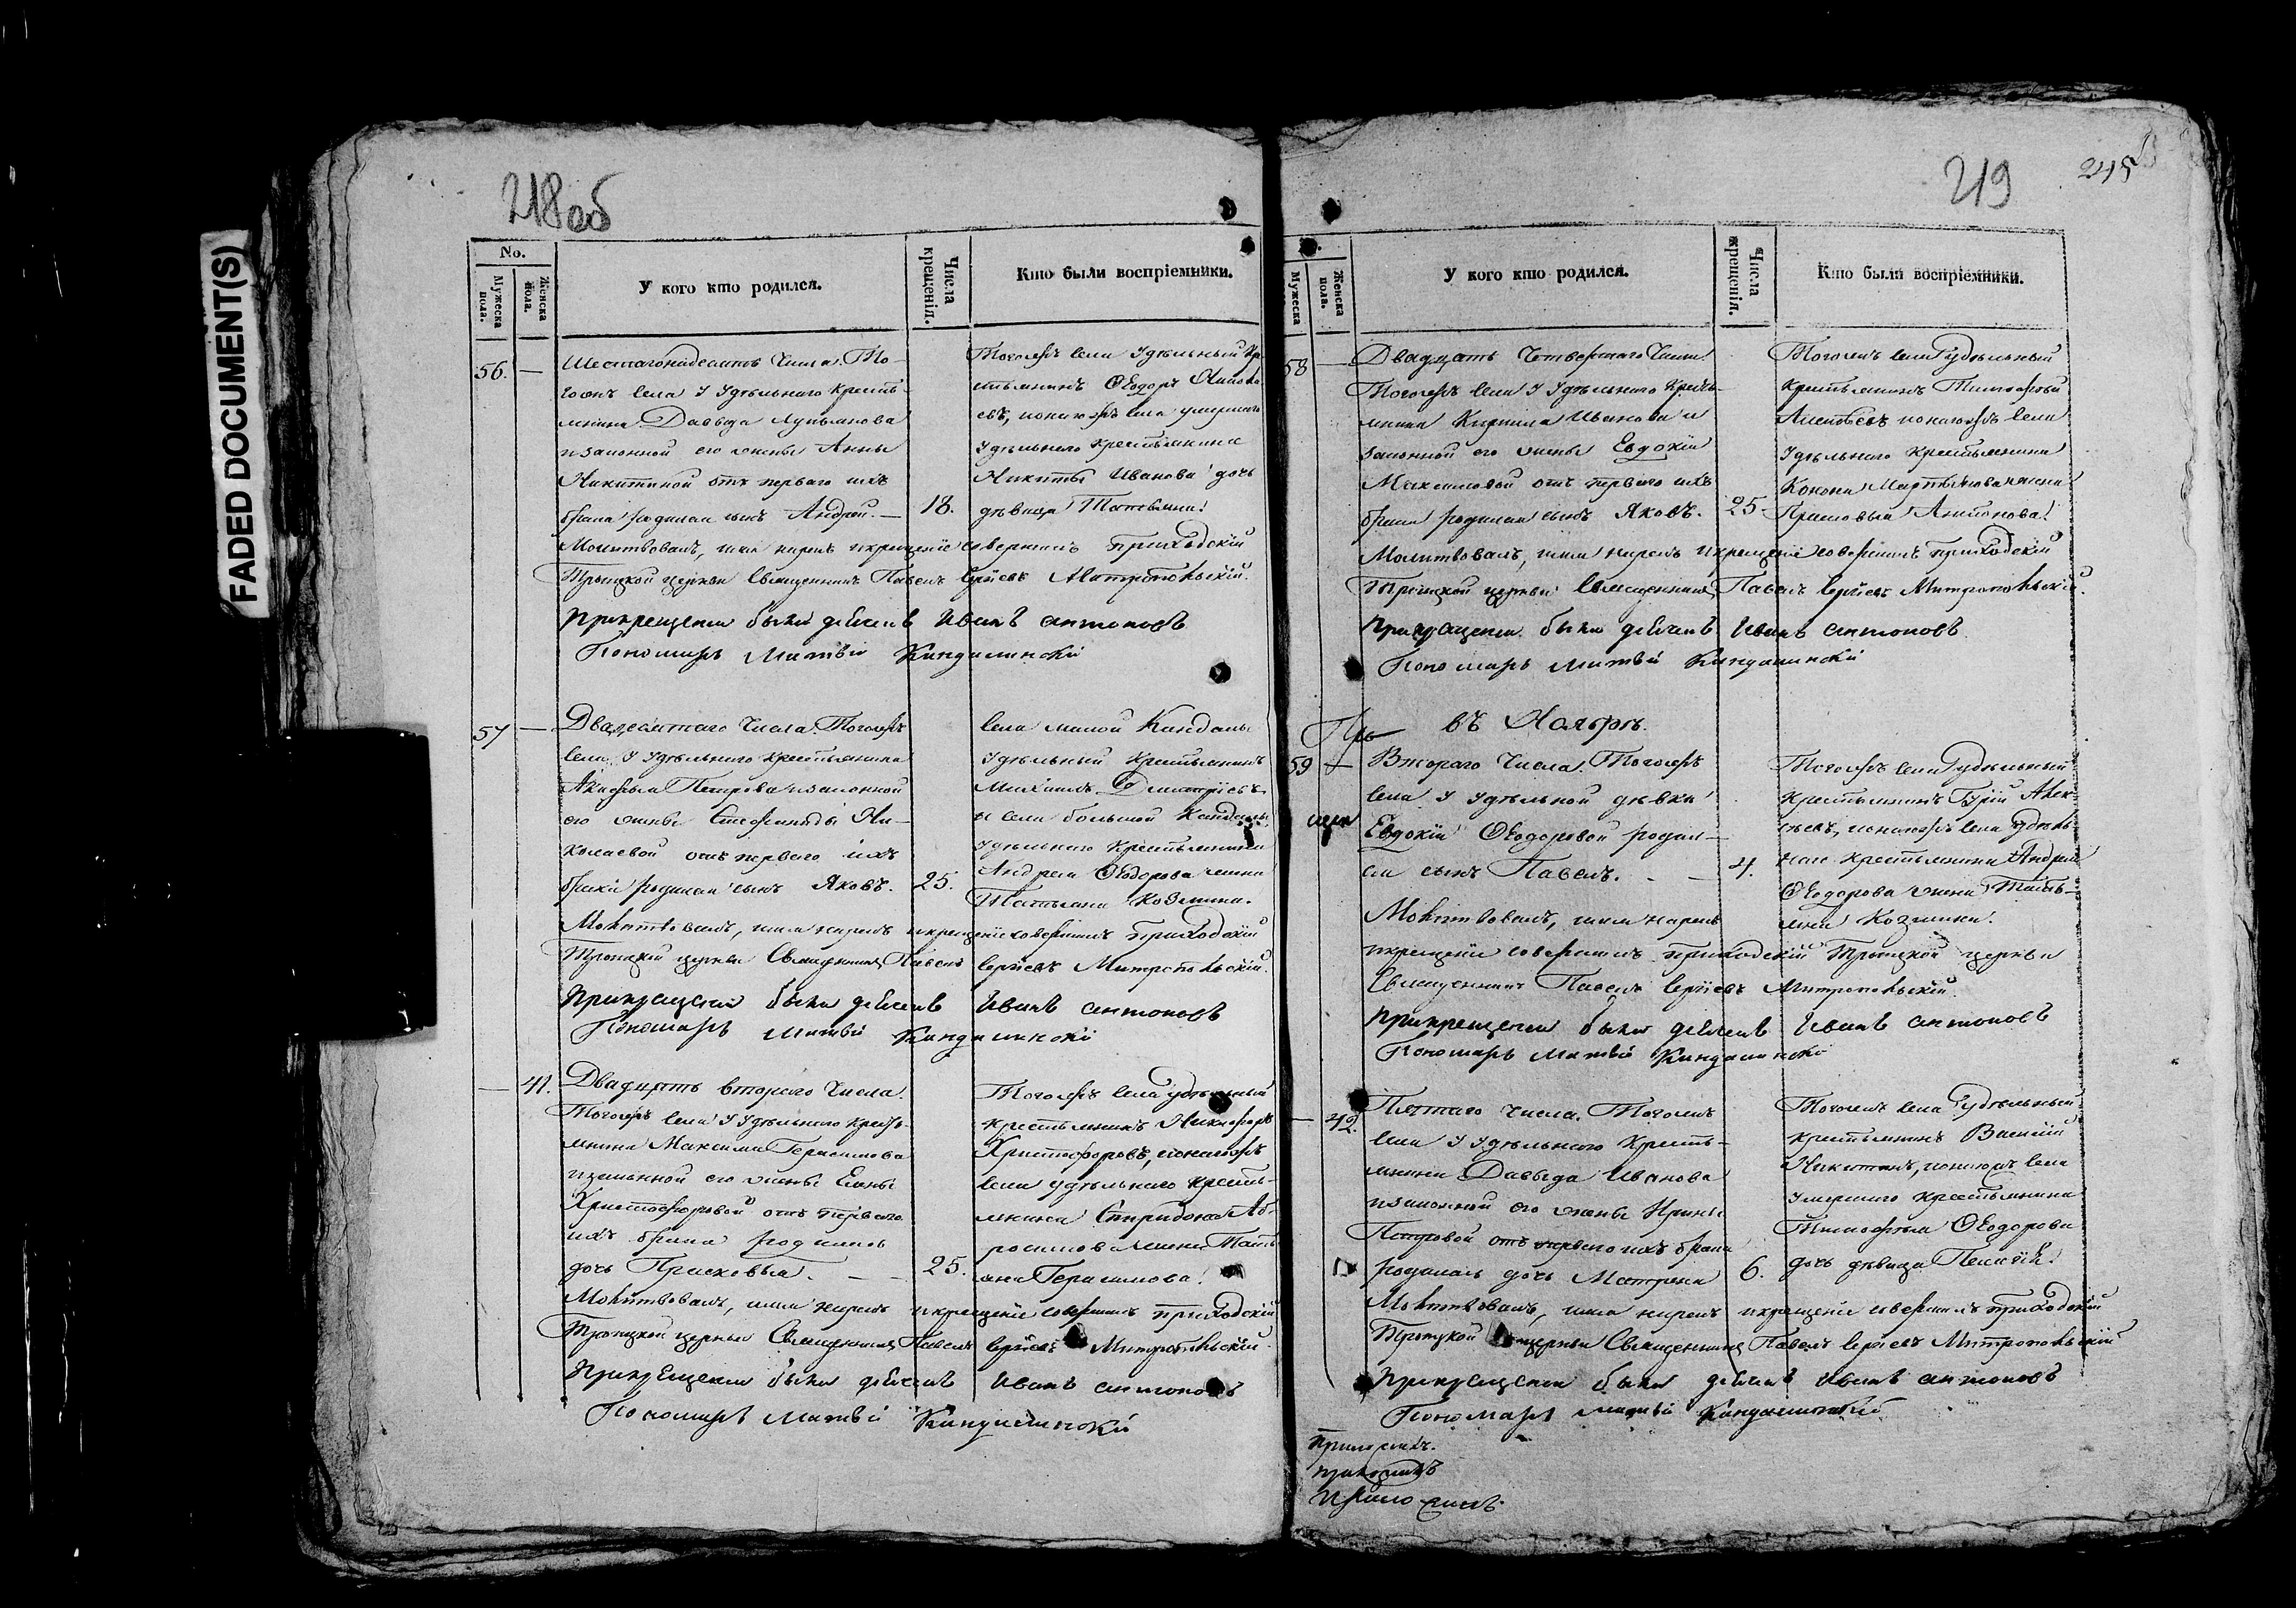 FADED DOCUMENT(S)
218 об
No.
Мужеска пола.
Женска пола.
У кого кто родился.
Числа крещенія.
Кто были воспріемники.
56.
Шестагонадесять Числа. То-
гожъ села У Удѣльнаго Кресть-
янина Давыда Лукьянова
и законной его жены Анны
Никитиной отъ перваго ихъ
брака родился сынъ Андрей.
18.
Тогожъ села Удѣльный Кре
стьянинъ Ѳеодоръ
евъ, и онагожъ села умершаго
удѣльнаго крестьянина
Никиты Иванова дочь
дѣвица Татьяна.
Молитвовалъ, имя нарекъ и крещеніе совершилъ приходскій
Троицкой церкви Священникъ Павелъ Сергіевъ Митропольскій.
При крещеніи былъ дьячекъ Иванъ антоновъ
Пономарь Матвѣй Кандалинскій
57
Двадесятаго Числа. Тогожъ
села У Удѣльнаго Крестьянина
Петрова и законной
его жены Стефаниды Ни-
колаевой отъ перваго ихъ
брака родился сынъ Яковъ.
25.
Села малой Кандалы
Удѣльный Крестьянинъ
Михаилъ Дмитріевъ
и села большой Кандалы
удѣльнаго Крестьянина
Андрея Ѳеодорова жена
Татьяна Козмина.
Молитвовалъ, имя нарекъ и крещеніе совершилъ приходскій
Троицкой церкви Священникъ Павелъ Сергіевъ Митропольскій.
При крещеніи былъ дьячекъ Иванъ антоновъ
Пономарь Матвѣй Кандалинскій
41.
Двадцать втораго Числа.
Тогожъ села У Удѣльнаго Кресть-
янина Максима Герасимова
и законной его жены Елены
Христофоровой отъ перваго
ихъ брака родилась
дочь Прасковья.
25.
Тогожъ села удѣльный
крестьянинъ Никифоръ
Христофоровъ, и онагожъ
села удѣльнаго кресть-
янина Спиридона Аб-
росимова жена Тать-
яна Герасимова.
Молитвовалъ, имя нарекъ и крещеніе совершилъ приходскій
Троицкой церкви Священникъ Павелъ Сергіевъ Митропольскій.
При крещеніи былъ дьячекъ Иванъ антоновъ
Пономарь Матвѣй Кандалинскій
219
245
Мужеска
Женска пола.
У кого кто родился.
Числа крещенія.
Кто были воспріемники.
58
Двадцать Четвертаго Числа
Тогожъ села У Удѣльнаго Кресть-
янина Кирилла Иванова и
законной его жены Евдокіи
Максимовой отъ перваго ихъ
брака родился сынъ Яковъ.
25
Тогожъ села удѣльный
крестьянинъ Тимофей
и онагожъ села
удѣльнаго крестьянина
Конона Мартынова жена
Прасковья Антонова.
Молитвовалъ, имя нарекъ и крещеніе совершилъ приходскій
Троицкой церкви Священникъ Павелъ Сергіевъ Митропольскій.
При крещеніи былъ дьячекъ Иванъ антоновъ.
Пономарь Матвѣй Кандалинскій
въ Ноябрѣ.
59
Втораго Числа. Тогожъ
села У Удѣльной дѣвки
Евдокіи Ѳеодоровой родил-
ся сынъ Павелъ.
4.
Тогожъ села удѣльный
крестьянинъ Гурій Алек-
сѣевъ, и онагожъ села удѣль
наго крестьянина Андрея
Ѳеодорова жена Тать-
яна Козмина.
Молитвовалъ, имя нарекъ
и крещеніе совершилъ приходскій Троицкой церкви
Священникъ Павелъ Сергіевъ Митропольскій.
При крещеніи былъ дьячекъ Иванъ антоновъ
Пономарь Матвѣй Кандалинскій
42.
Пятаго Числа. Тогожъ
села У Удѣльнаго Кресть-
янина Давыда Иванова
и законной его жены Ирины
Петровой отъ перваго ихъ брака
родилась дочь Матрена
6.
Тогожъ села Удѣльный
крестьянинъ Василій
Никитинъ, и онагожъ села
умершаго крестьянина
Тимофея Ѳеодорова
дочь дѣвица Пелагія.
Молитвовалъ, имя нарекъ и крещеніе совершилъ приходскій
Троицкой церкви Священникъ Павелъ Сергіевъ Митропольскій
При крещеніи былъ дьячекъ Иванъ антоновъ
Пономарь Матвѣй Кандалинскій